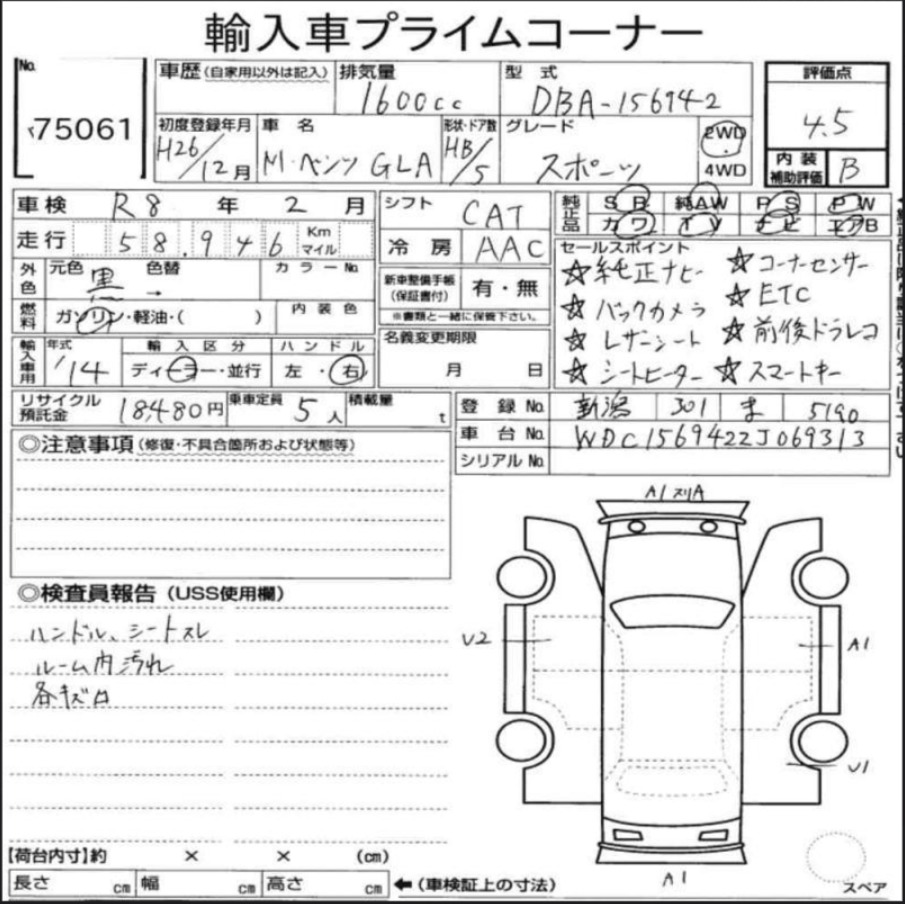 輸入車プライムコーナー
No.
75061
車歴(自家用以外は記入)
排気量
1600cc
型 式
DBA-156942
評価点
4.5
初度登録年月
H26/12月
車 名
M・ベンツ GLA
形状・ドア数
HB/5
グレード
スポーツ
2WD
4WD
内 装
補助評価
B
車検 R8 年 2 月
走行 58.946 Km マイル
シフト CAT
冷 房 AAC
純正品
SR 純AW PS PW
カワ TV ナビ エアB
セールスポイント
☆純正ナビー ☆コーナーセンサー
☆バックカメラ ☆ETC
☆レザーシート ☆前後ドラレコ
☆シートヒーター ☆スマートキー
外色 元色 黒 → 色替
カラーNo.
新車整備手帳
(保証書付)
有・無
※書類と一緒に保管下さい。
燃料 ガソリン・軽油・( )
内 装 色
名義変更期限
月 日
輸入車用 年式 '14
輸 入 区 分
ディーラー・並行
ハ ン ド ル
左・右
リサイクル
預託金
18480円
乗車定員 5人
積載量 t
登 録 No. 新潟 301 ま 5190
車 台 No. WDC1569422J069313
シリアルNo.
◎注意事項(修復・不具合箇所および状態等)
◎検査員報告(USS使用欄)
ハンドル、シートスレ
ルーム内汚れ
各キズ有
A1 スリA
U2
A1
U1
A1
スペア
【荷台内寸】約 × × (cm)
長さ cm 幅 cm 高さ cm
←(車検証上の寸法)